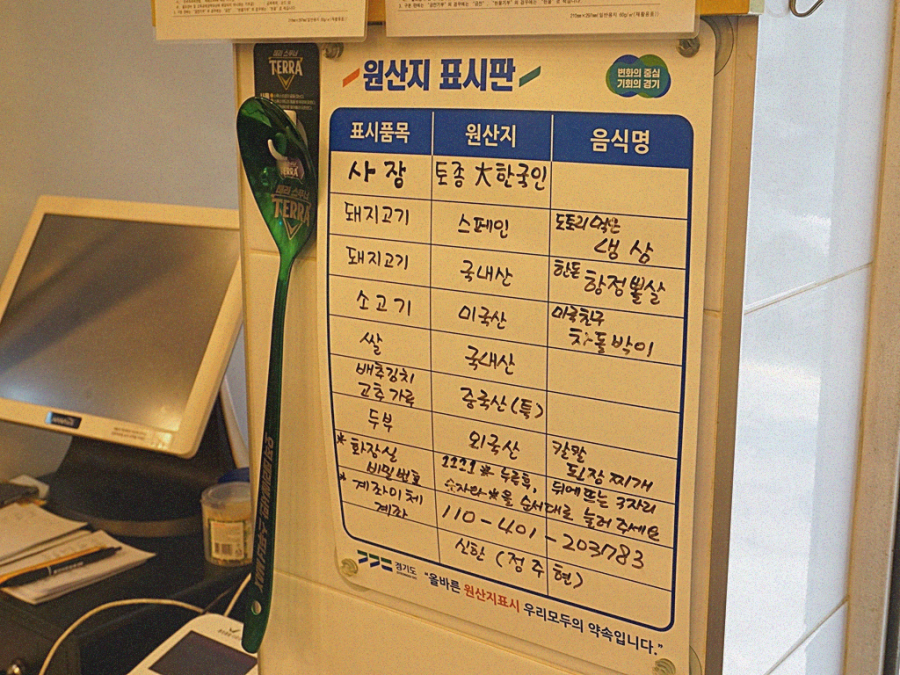 210mm×297mm
원산지 표시판
변화의 중심
기회의 경기
표시품목 원산지 음식명
사장 토종 大한국인
돼지고기 스페인 도토리먹은 생상
돼지고기 국내산 한돈 항정뽈살
소고기 미국산 미국친구 차돌박이
쌀 국내산
배추김치 고추가루 중국산(특)
두부 외국산 칼말 된장찌개
*화장실 비밀번호 1111* 누른후, 뒤에뜨는 숫자와 *을 순서대로 눌러 주세요
*계좌이체 계좌 110-401-203783
신한 (정주현)
경기도
"올바른 원산지표시 우리모두의 약속입니다."
테라 스푸너
TERRA
TERRA
테라 스푸너
TERRA